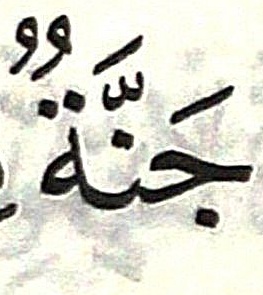 جَنَّةٌ